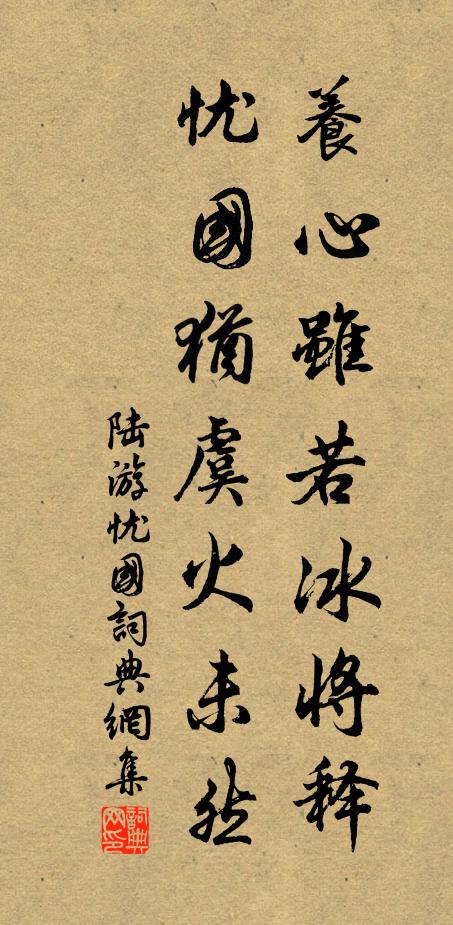 養心雖若冰将释
忧國猶虞火未然
陆游忧國詞典網集
詞典网印